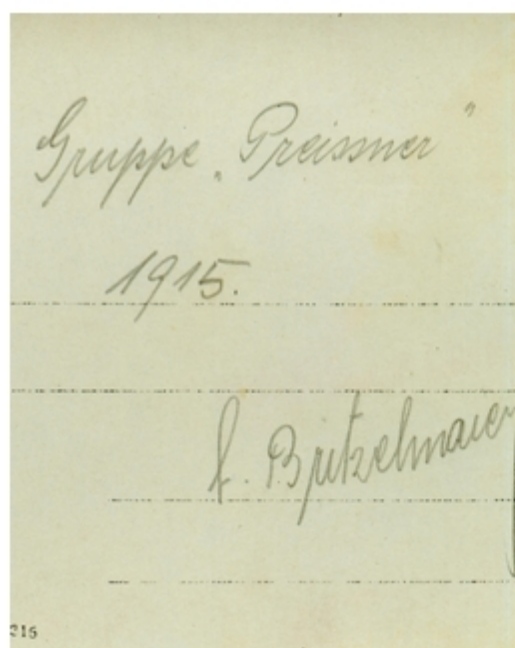 Gruppe „Preissner"
1915.
f. Britzelmaier
216